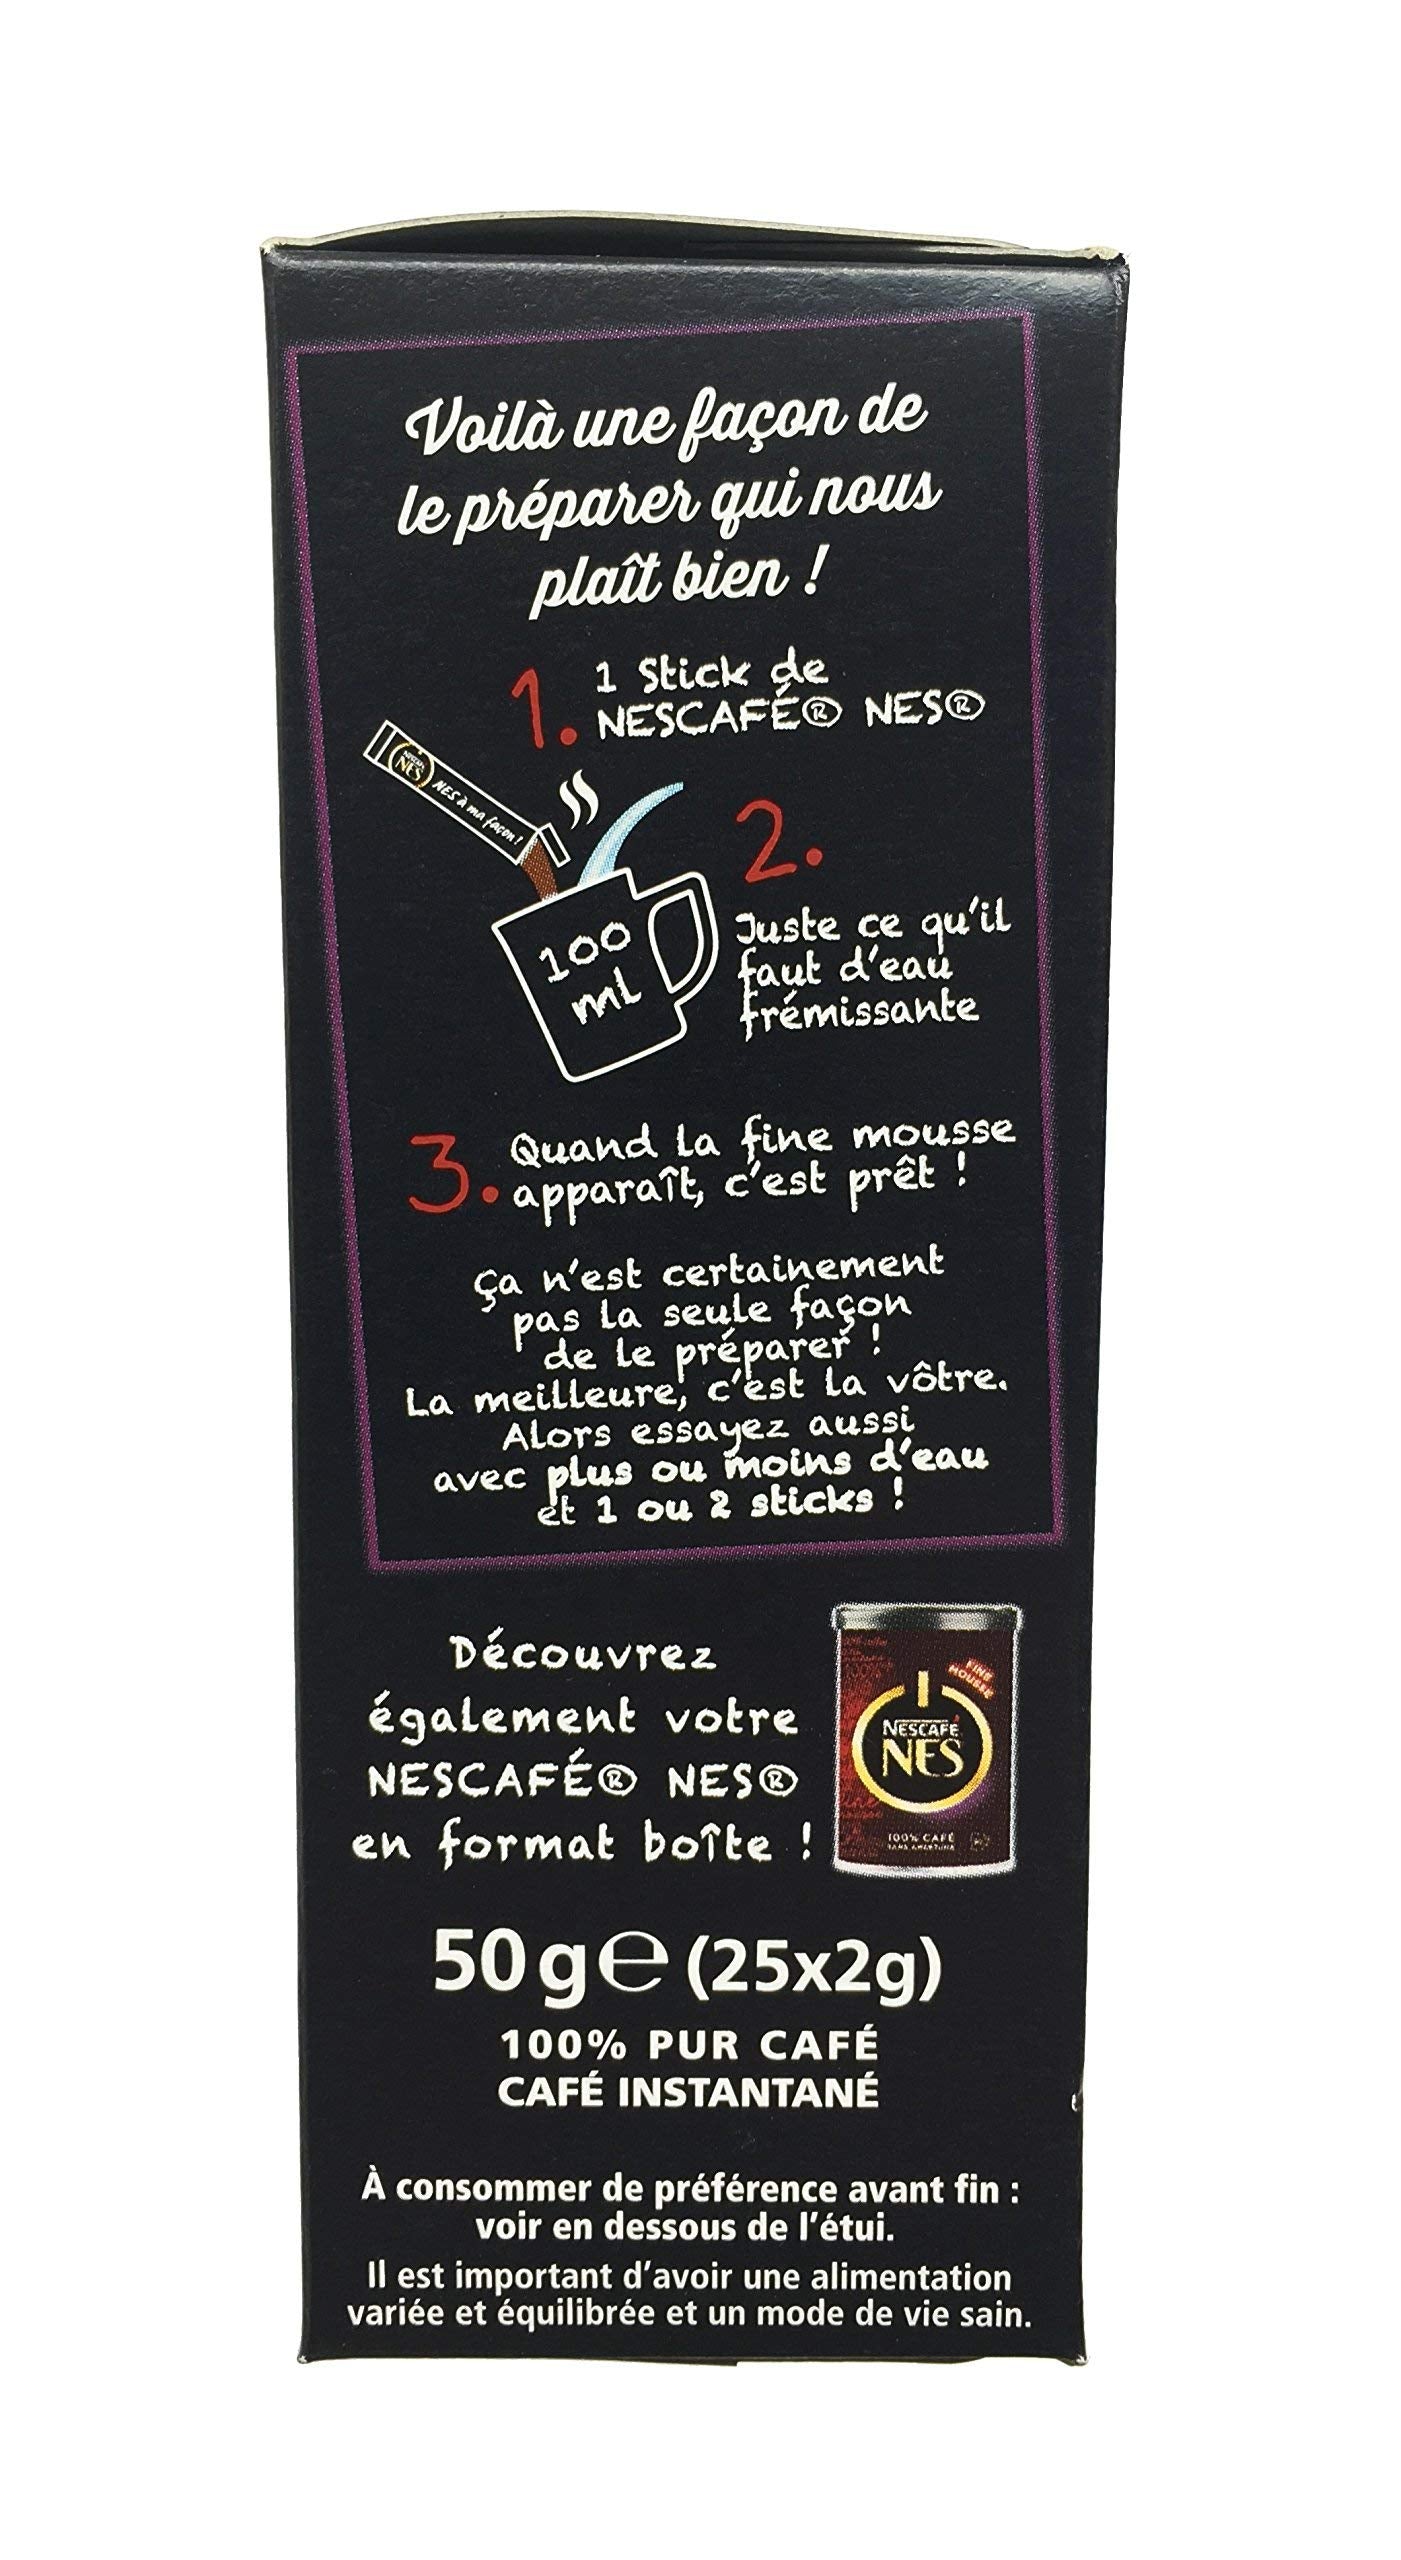 Voilà une façon de
le préparer qui nous
plaît bien !
1. 1 Stick de
NESCAFÉ® NES®
NESCAFÉ
NES
NES à ma façon !
2.
100
ml
Juste ce qu'il
faut d'eau
frémissante
3. Quand la fine mousse
apparaît, c'est prêt !
Ça n'est certainement
pas la seule façon
de le préparer !
La meilleure, c'est la vôtre.
Alors essayez aussi
avec plus ou moins d'eau
et 1 ou 2 sticks !
Découvrez
également votre
NESCAFÉ® NES®
en format boîte !
FINE
MOUSSE
NESCAFÉ
NES
100% CAFÉ
SANS AMERTUME
50 g e (25x2g)
100% PUR CAFÉ
CAFÉ INSTANTANÉ
À consommer de préférence avant fin :
voir en dessous de l'étui.
Il est important d'avoir une alimentation
variée et équilibrée et un mode de vie sain.